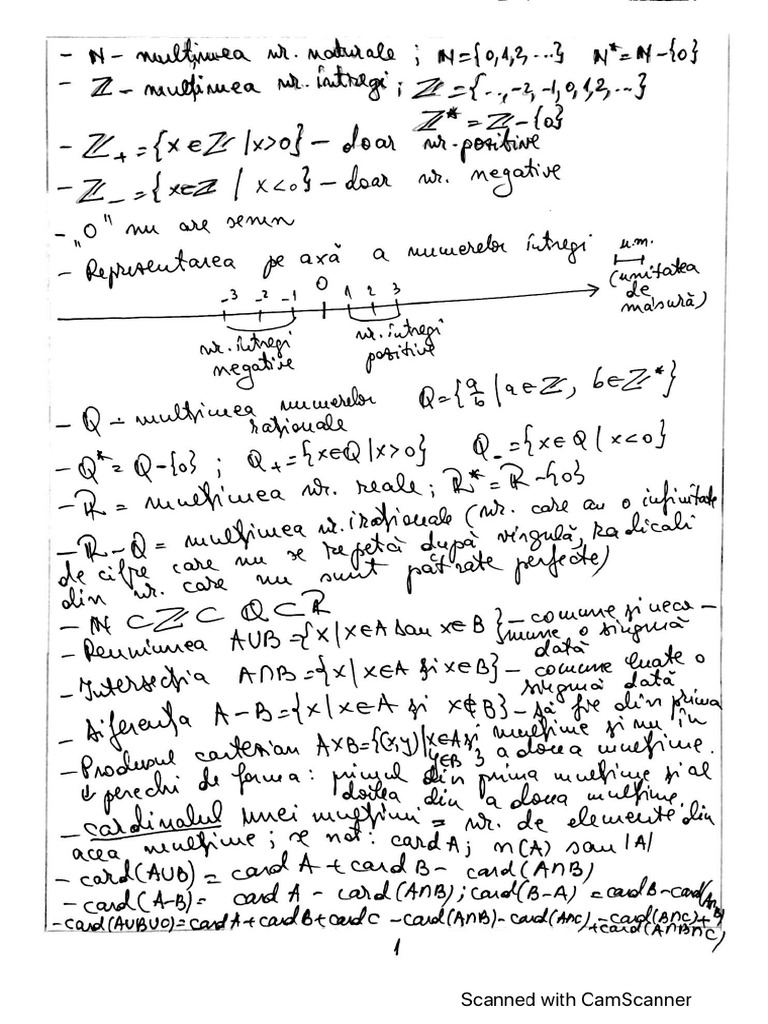 - N - mulțimea nr. naturale ; N={0,1,2,...} N*=N-{0}
- Z - mulțimea nr. întregi ; Z={...,-2,-1,0,1,2,...}
Z*=Z-{0}
- Z₊={x∈Z | x>0} - doar nr. pozitive
- Z₋={x∈Z | x<0} - doar nr. negative
- „0" nu are semn
- Reprezentarea pe axă a numerelor întregi u.m.
(unitatea de măsură)
-3 -2 -1 0 1 2 3
nr. întregi negative nr. întregi pozitive
- Q - mulțimea numerelor Q={a/b | a∈Z, b∈Z*}
raționale
- Q*=Q-{0} ; Q₊={x∈Q | x>0} Q₋={x∈Q | x<0}
- R = mulțimea nr. reale ; R*=R-{0}
- R-Q = mulțimea nr. iraționale (nr. care au o infinitate
de cifre care nu se repetă după virgulă, radicali
din nr. care nu sunt pătrate perfecte)
- N ⊂ Z ⊂ Q ⊂ R
- Reuniunea A∪B={x | x∈A sau x∈B} - comune și neco-
mune o singură dată
- Intersecția A∩B={x | x∈A și x∈B} - comune luate o
singură dată
- Diferența A-B={x | x∈A și x∉B} - să fie din prima
mulțime și nu în a doua mulțime.
- Produsul cartezian A×B={(x,y) | x∈A și y∈B}
↓ perechi de forma: primul din prima mulțime și al
doilea din a doua mulțime.
- cardinalul unei mulțimi = nr. de elemente din
acea mulțime ; se not: card A; n(A) sau |A|
- card(A∪B) = card A + card B - card(A∩B)
- card(A-B) = card A - card(A∩B) ; card(B-A) = card B - card(A∩B)
- card(A∪B∪C) = card A + card B + card C - card(A∩B) - card(A∩C) - card(B∩C) +
+ card(A∩B∩C)
1
Scanned with CamScanner